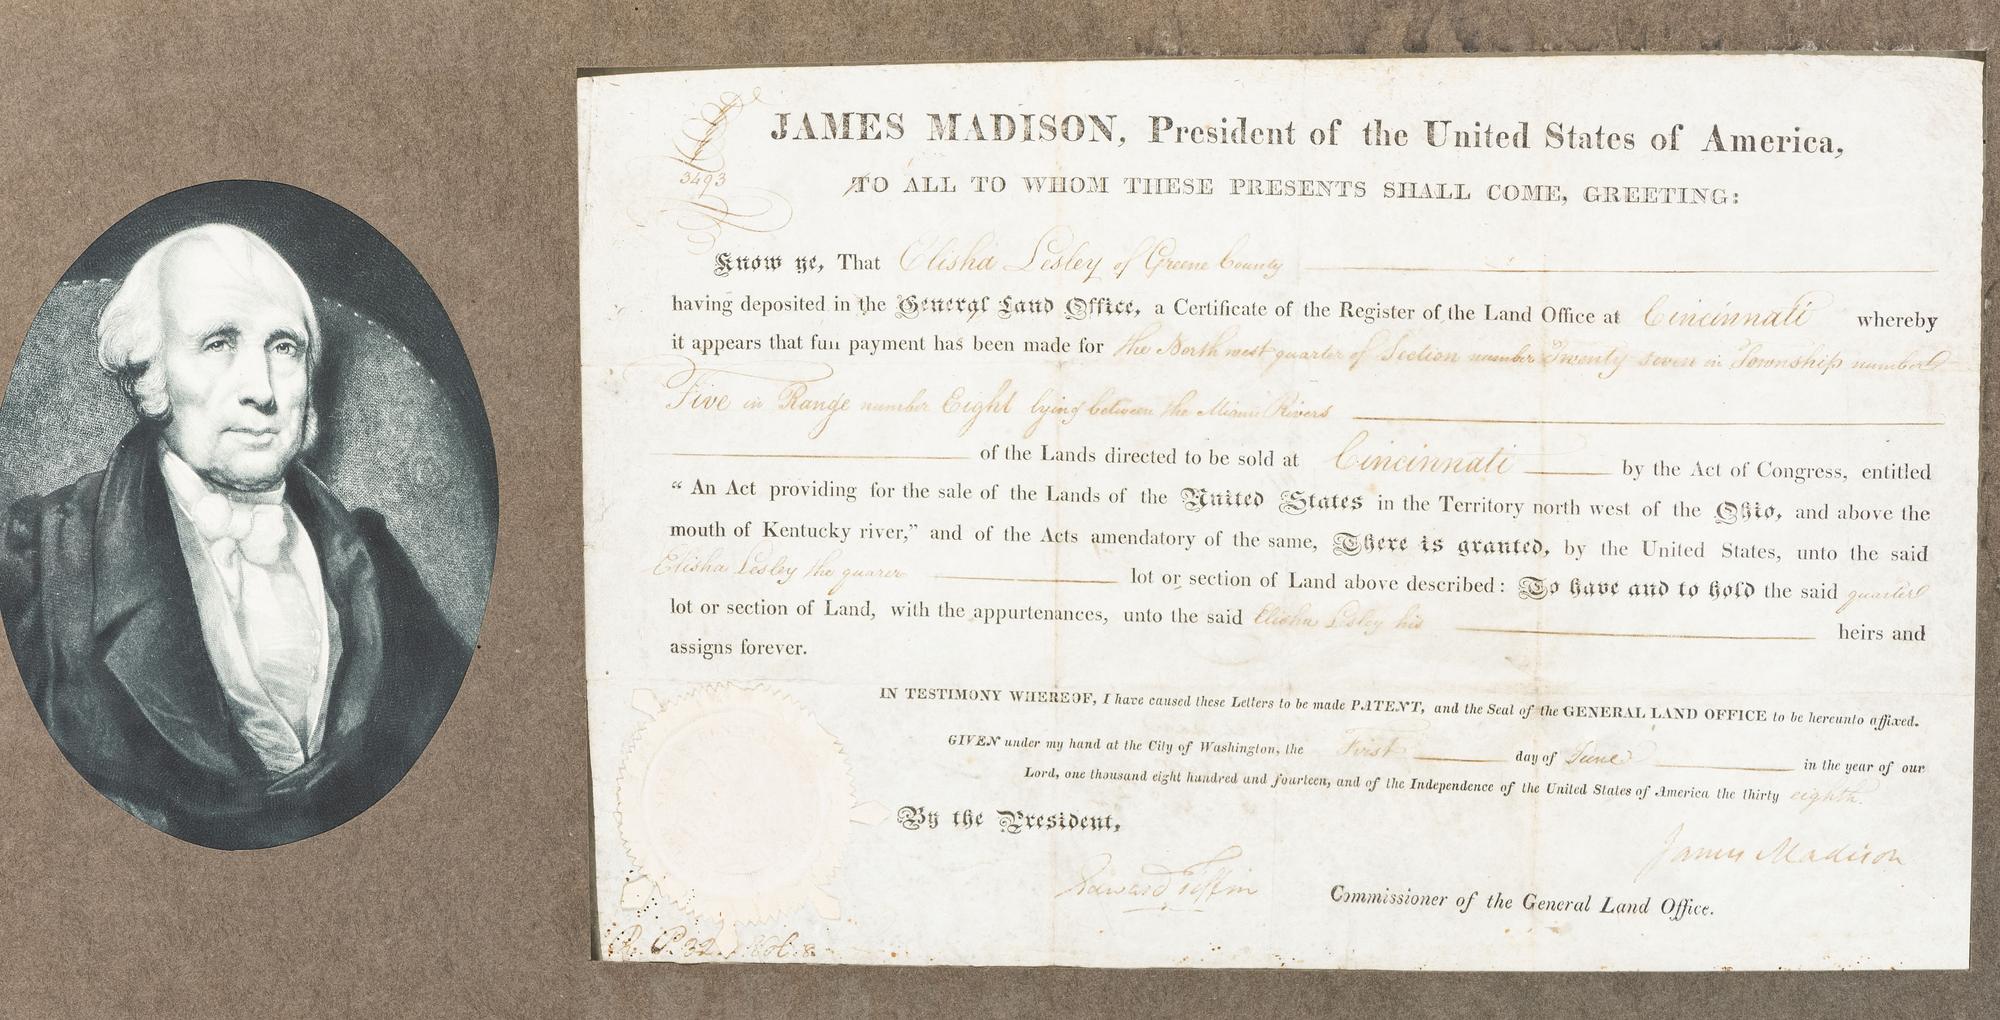 3493
JAMES MADISON, President of the United States of America,
TO ALL TO WHOM THESE PRESENTS SHALL COME, GREETING:
Know ye, That Elisha Lesley of Greene County
having deposited in the General Land Office, a Certificate of the Register of the Land Office at Cincinnati whereby
it appears that full payment has been made for the North west quarter of Section number Twenty seven in Township number
Five in Range number Eight lying between the Miami Rivers
of the Lands directed to be sold at Cincinnati by the Act of Congress, entitled
“ An Act providing for the sale of the Lands of the United States in the Territory north west of the Ohio, and above the
mouth of Kentucky river,” and of the Acts amendatory of the same, There is granted, by the United States, unto the said
Elisha Lesley the quarter lot or section of Land above described: To have and to hold the said quarter
lot or section of Land, with the appurtenances, unto the said Elisha Lesley his heirs and
assigns forever.
IN TESTIMONY WHEREOF, I have caused these Letters to be made PATENT, and the Seal of the GENERAL LAND OFFICE to be hereunto affixed.
GIVEN under my hand at the City of Washington, the First day of June in the year of our
Lord, one thousand eight hundred and fourteen, and of the Independence of the United States of America the thirty eighth.
By the President,
James Madison
Edward Tiffin Commissioner of the General Land Office.
R. P. 32. Vol. 8